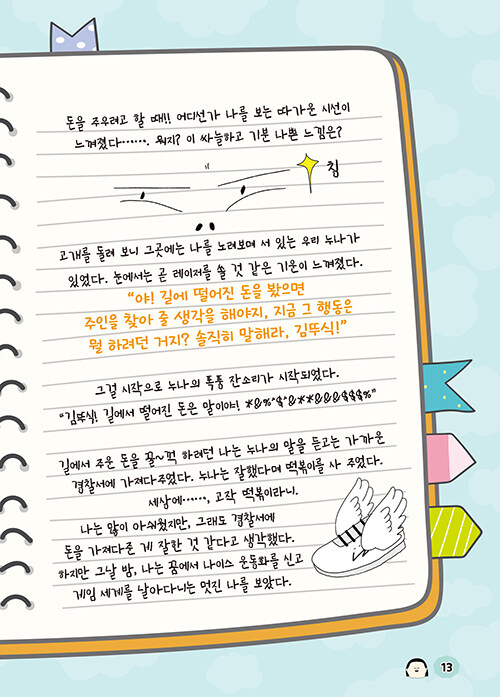 돈을 주우려고 할 때!! 어디선가 나를 보는 따가운 시선이
느껴졌다……. 뭐지? 이 싸늘하고 기분 나쁜 느낌은?
칩
고개를 돌려 보니 그곳에는 나를 노려보며 서 있는 우리 누나가
있었다. 눈에서는 곧 레이저를 쏠 것 같은 기운이 느껴졌다.
“야! 길에 떨어진 돈을 봤으면
주인을 찾아 줄 생각을 해야지, 지금 그 행동은
뭘 하려던 거지? 솔직히 말해라, 김뚜식!”
그걸 시작으로 누나의 폭풍 잔소리가 시작되었다.
“김뚜식! 길에서 떨어진 돈은 말이야! *@%^$^@**@@@$$$%”
길에서 주운 돈을 꿀~꺽 하려던 나는 누나의 말을 듣고는 가까운
경찰서에 가져다주었다. 누나는 잘했다며 떡볶이를 사 주었다.
세상에……, 고작 떡볶이라니.
나는 많이 아쉬웠지만, 그래도 경찰서에
돈을 가져다준 게 잘한 것 같다고 생각했다.
하지만 그날 밤, 나는 꿈에서 나이스 운동화를 신고
게임 세계를 날아다니는 멋진 나를 보았다.
13